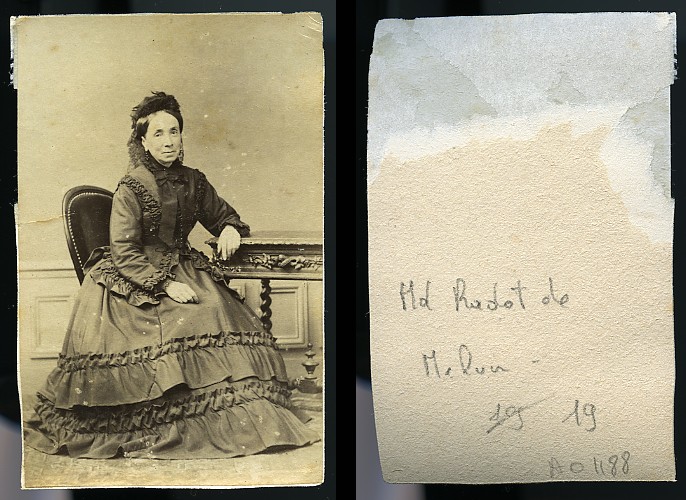 Md Radot de
Melun -
19 19
A01188